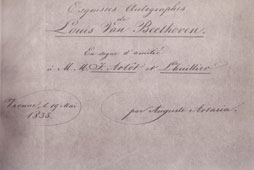 Esquisses Autographes
de
Louis Van Beethoven.
En signe d'amitié
à M. M. F. Artôt et Lhuillier
Vienne, le 19 Mai
1835.
par Auguste Artaria